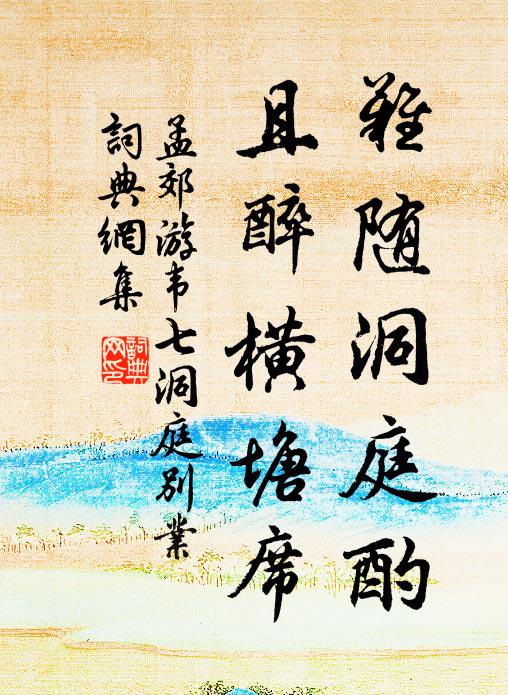 難随洞庭酌
且醉横塘席
孟郊游韦七洞庭别業
詞典網集
詞典
网印